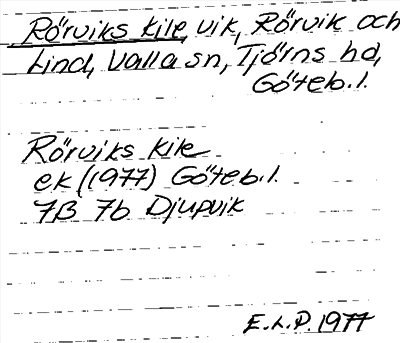 Rörviks kile, vik, Rörvik och
Lind, Valla sn, Tjörns hd,
Göteb. l.
Rörviks kile
ek (1977) Göteb. l.
7B 7b Djupvik
E.L.P. 1977